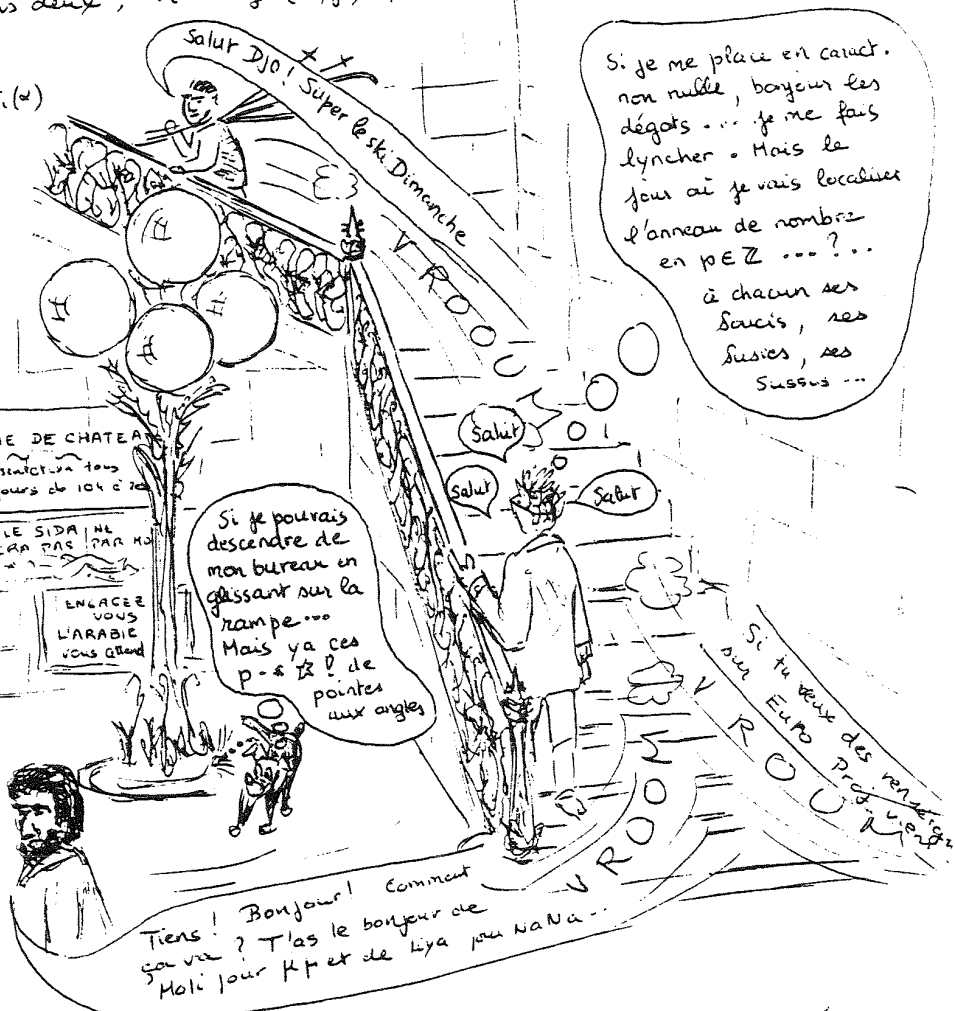 s deux,
i(α)
Salut DJO! Super le ski Dimanche
VROOUM
Si je me place en caract.
non nulle, bonjour les
dégats ... je me fais
lyncher. Mais le
jour où je vais localiser
l'anneau de nombre
en p∈ℤ ...?..
à chacun ses
soucis, ses
susies, ses
sussus ...
salut
salut
salut
E DE CHATEA
tous
jours de 10h à 20
LE SIDA NE
RA PAS PAR MO
ENGAGEZ
VOUS
L'ARABIE
vous attend
Si je pouvais
descendre de
mon bureau en
glissant sur la
rampe...
Mais ya ces
p-s☆! de
pointes
aux angles
Si tu veux des renseign
sur EuRO Prof. viens
VROUM
VROOM
Tiens! Bonjour! Comment
ça va? T'as le bonjour de
Moli pour μμ et de Liya pour NaNa..